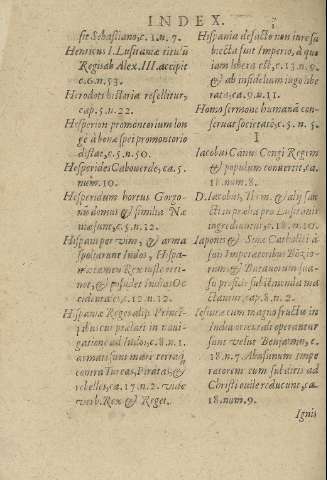 INDEX.
sit Sebastiano, c. 1. n. 7.
Henricus I. Lusitaniæ titulũ
Regis ab Alex. III. accipit
c. 6. n. 53.
Herodoti historia refellitur,
cap. 5. n. 22.
Hesperion promontorium lon
ge à bonæ spei promontorio
distat, c. 5. n. 50.
Hesperides Caboverde, ca. 5.
num. 10.
Hesperidum hortus Gorgo-
nũ domus & similia Næ
niæ sunt, c. 5. n. 12.
Hispani per vim, & arma
spoliarunt Indos, Hispa-
niæ tamen Rex iuste reti-
net, & possidet Indias Oc
cidentales, c. 12. n. 12.
Hispaniæ Reges aliis Princi-
pibus cur prælati in navi-
gatione ad Indos, c. 8. n. 1.
armati sunt mari terraq;
contra Turcas, Piratas, &
rebelles, ca. 17. n. 2. vide
verb. Rex & Reges.
Hispania de facto non iure su
biecta fuit Imperio, à quo
iam libera est, c. 13. n. 9.
& ab infidelium iugo libe
rata, ca. 9. n. 11.
Homo sermone humanã con-
servat societatẽ, c. 5. n. 5.
I
Iacobus Canus Congi Regem
& populum convertit, ca.
18. num. 8.
D. Iacobus, Hem. & alij san
cti in prælia pro Lusitanis
ingrediuntur, c. 18. n. 10.
Iaponiæ, & Sinæ Catholici à
sunt Imperatoribus
& Baravorum sua-
su profide subditenda ma
ctantur, cap. 8. n. 2.
Iesuitæ cum magno fructu in
India orientali operantur
sunt velut Benjamin, c.
18. n. 7. Abusinum Impe
ratorem cum subditis ad
Christi ovile reducunt, ca.
18. num. 9.
Ignis